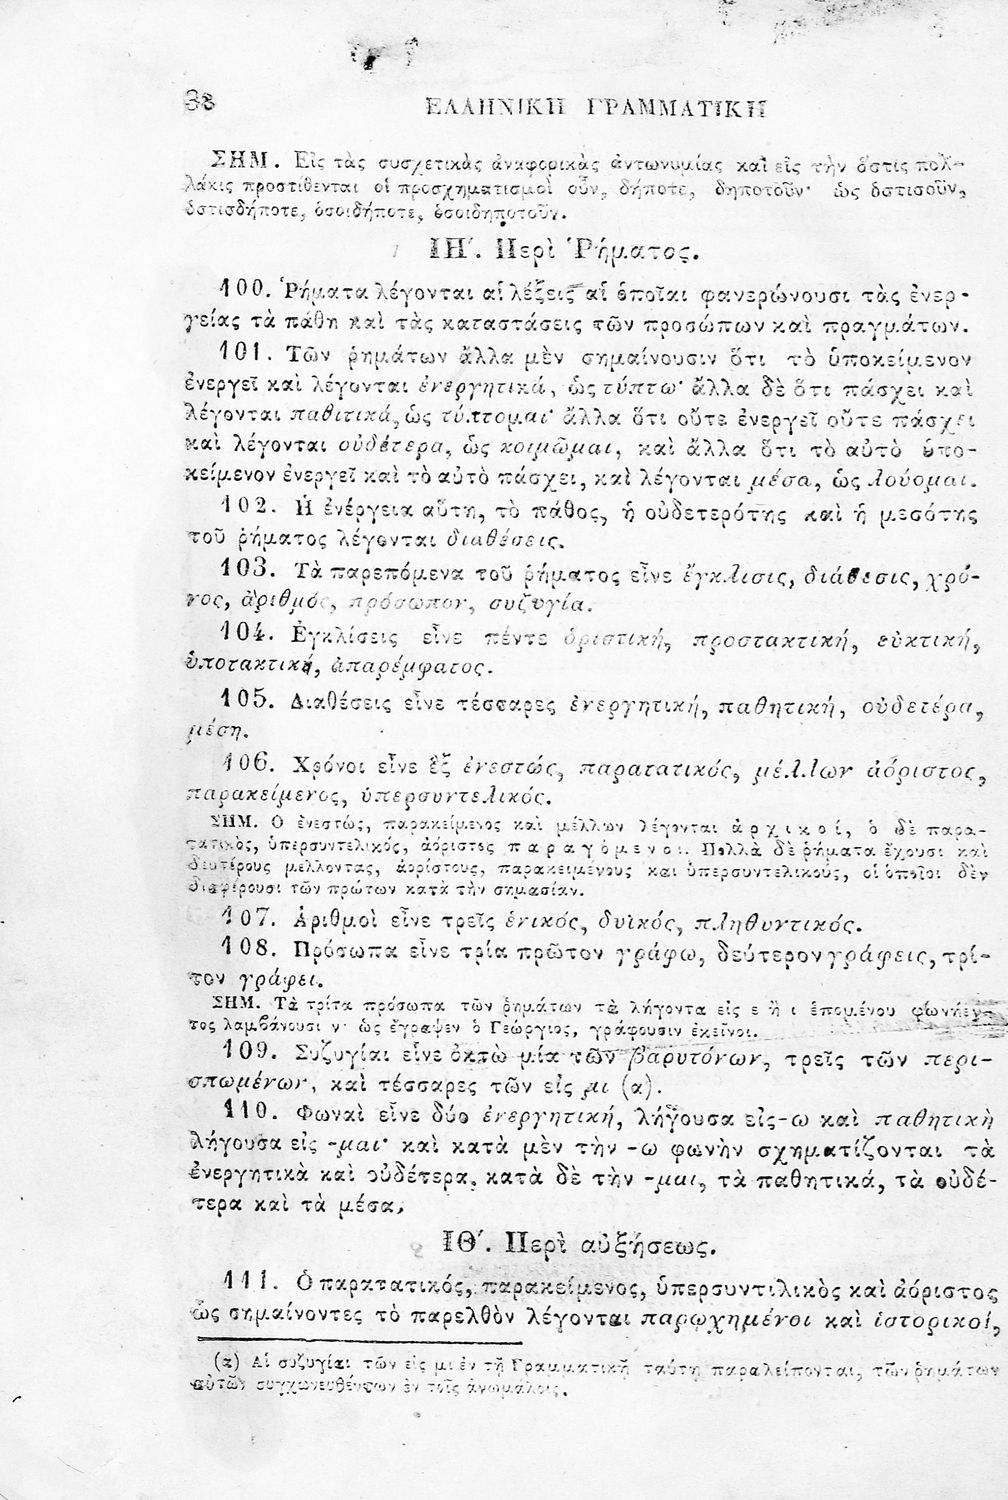 38 ΕΛΛΗΝΙΚΗ ΓΡΑΜΜΑΤΙΚΗ
ΣΗΜ. Εἰς τὰς συσχετικὰς ἀναφορικὰς ἀντωνυμίας καὶ εἰς τὴν ὅστις πολ-
λάκις προστίθενται οἱ προσχηματισμοὶ οὖν, δήποτε, δηποτοῦν· ὡς ὁστισοῦν,
ὁστισδήποτε, ὁσοιδήποτε, ὁσοιδηποτοῦν.
ΙΗ΄. Περὶ Ῥήματος.
100. Ῥήματα λέγονται αἱ λέξεις αἱ ὁποῖαι φανερώνουσι τὰς ἐνερ-
γείας τὰ πάθη καὶ τὰς καταστάσεις τῶν προσώπων καὶ πραγμάτων.
101. Τῶν ῥημάτων ἄλλα μὲν σημαίνουσιν ὅτι τὸ ὑποκείμενον
ἐνεργεῖ καὶ λέγονται ἐνεργητικά, ὡς τύπτω· ἄλλα δὲ ὅτι πάσχει καὶ
λέγονται παθιτικά, ὡς τύπτομαι· ἄλλα ὅτι οὔτε ἐνεργεῖ οὔτε πάσχει
καὶ λέγονται οὐδέτερα, ὡς κοιμῶμαι, καὶ ἄλλα ὅτι τὸ αὐτὸ ὑπο-
κείμενον ἐνεργεῖ καὶ τὸ αὐτὸ πάσχει, καὶ λέγονται μέσα, ὡς λούομαι.
102. Ἡ ἐνέργεια αὕτη, τὸ πάθος, ἡ οὐδετερότης καὶ ἡ μεσότης
τοῦ ῥήματος λέγονται διαθέσεις.
103. Τὰ παρεπόμενα τοῦ ῥήματος εἶνε ἔγκλισις, διάθεσις, χρό-
νος, ἀριθμός, πρόσωπον, συζυγία.
104. Ἐγκλίσεις εἶνε πέντε ὁριστική, προστακτική, εὐκτική,
ὑποτακτική, ἀπαρέμφατος.
105. Διαθέσεις εἶνε τέσσαρες ἐνεργητική, παθητική, οὐδετέρα,
μέση.
106. Χρόνοι εἶνε ἓξ ἐνεστώς, παρατατικός, μέλλων ἀόριστος,
παρακείμενος, ὑπερσυντελικός.
ΣΗΜ. Ὁ ἐνεστώς, παρακείμενος καὶ μέλλων λέγονται ἀρχικοί, ὁ δὲ παρα-
τατικὸς, ὑπερσυντελικός, ἀόριστος παραγόμενοι. Πολλὰ δὲ ῥήματα ἔχουσι καὶ
δευτέρους μέλλοντας, ἀορίστους, παρακειμένους καὶ ὑπερσυντελικούς, οἱ ὁποῖοι δὲν
διαφέρουσι τῶν πρώτων κατὰ τὴν σημασίαν.
107. Ἀριθμοὶ εἶνε τρεῖς ἑνικός, δυϊκός, πληθυντικός.
108. Πρόσωπα εἶνε τρία πρῶτον γράφω, δεύτερον γράφεις, τρί-
τον γράφει.
ΣΗΜ. Τὰ τρίτα πρόσωπα τῶν ῥημάτων τὰ λήγοντα εἰς ε ἢ ι ἑπομένου φωνήεν-
τος λαμβάνουσι ν· ὡς ἔγραψεν ὁ Γεώργιος, γράφουσιν ἐκεῖνοι.
109. Συζυγίαι εἶνε ὀκτὼ μία τῶν βαρυτόνων, τρεῖς τῶν περι-
σπωμένων, καὶ τέσσαρες τῶν εἰς μι (α).
110. Φωναὶ εἶνε δύο ἐνεργητική, λήγουσα εἰς-ω καὶ παθητικὴ
λήγουσα εἰς -μαι· καὶ κατὰ μὲν τὴν -ω φωνὴν σχηματίζονται τὰ
ἐνεργητικὰ καὶ οὐδέτερα, κατὰ δὲ τὴν -μαι, τὰ παθητικά, τὰ οὐδέ-
τερα καὶ τὰ μέσα.
ΙΘ΄. Περὶ αὐξήσεως.
111. Ὁ παρατατικός, παρακείμενος, ὑπερσυντιλικὸς καὶ ἀόριστος
ὡς σημαίνοντες τὸ παρελθὸν λέγονται παρῳχημένοι καὶ ἱστορικοί,
(α) Αἱ συζυγίαι τῶν εἰς μι ἐν τῇ Γραμματικῇ ταύτῃ παραλείπονται, τῶν ῥημάτων
αὐτῶν συγχωνευθέντων ἐν τοῖς ἀνωμάλοις.